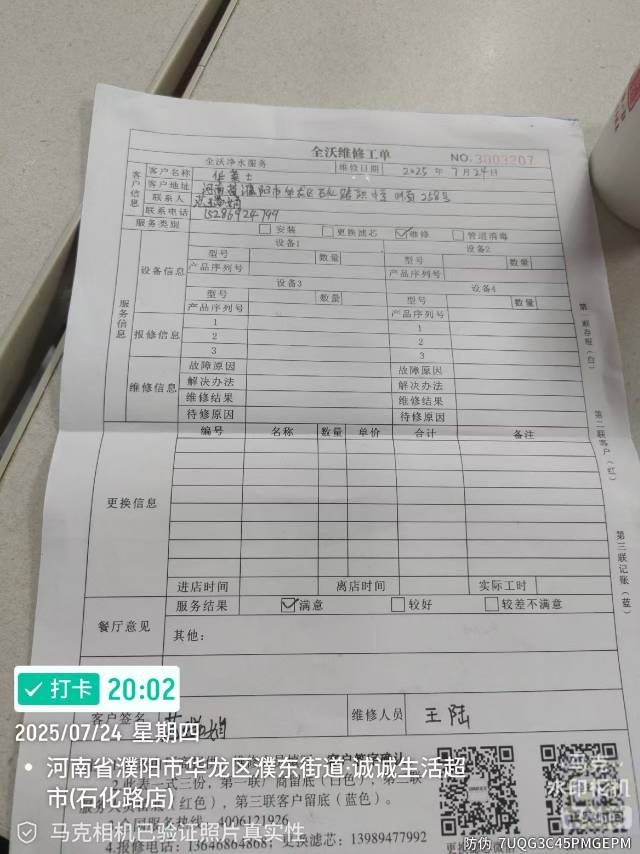 全沃维修工单
NO. 3003207
全沃净水服务 维修日期 2025 年 7月24日
客户信息
客户名称 华莱士
客户地址 河南省濮阳市华龙区石化路 258号
联系人
联系电话 15286924799
服务类别 安装 更换滤芯 维修 管道消毒
服务信息
设备信息
设备1 设备2
型号 数量 型号 数量
产品序列号 产品序列号
设备3 设备4
型号 数量 型号 数量
产品序列号 产品序列号
报修信息
1 1
2 2
3 3
维修信息
故障原因 故障原因
解决办法 解决办法
维修结果 维修结果
待修原因 待修原因
更换信息
编号 名称 数量 单价 合计 备注
进店时间 离店时间 实际工时
餐厅意见
服务结果 满意 较好 较差不满意
其他:
客户签名 维修人员 王陆
第一联存根(白)
第二联客户(红)
第三联记账(蓝)
2.此表一式三份,第一联厂商留底(白色),第二联
服务 红色),第三联客户留底(蓝色)。
全国服务热线:4006121926
4.报修电话:13646864868;更换滤芯:13989477992
打卡 20:02
2025/07/24 星期四
河南省濮阳市华龙区濮东街道·诚诚生活超
市(石化路店)
马克相机已验证照片真实性
马克
水印相机
防伪 7UQG3C45PMGEPM